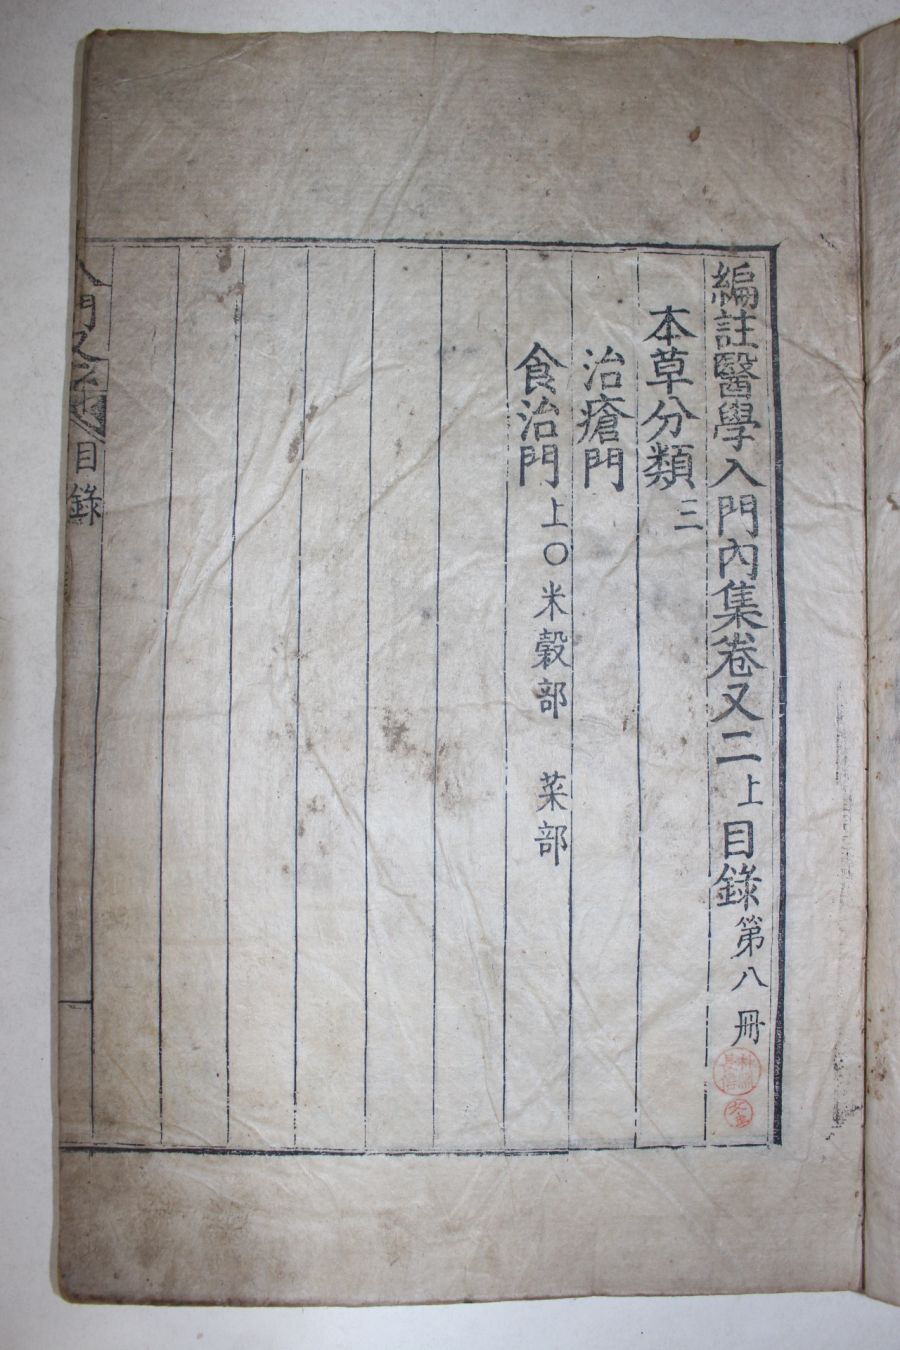 編註醫學入門內集卷又二上目錄第八冊
本草分類三
治瘡門
食治門上〇米穀部 菜部
入門又二上 目錄